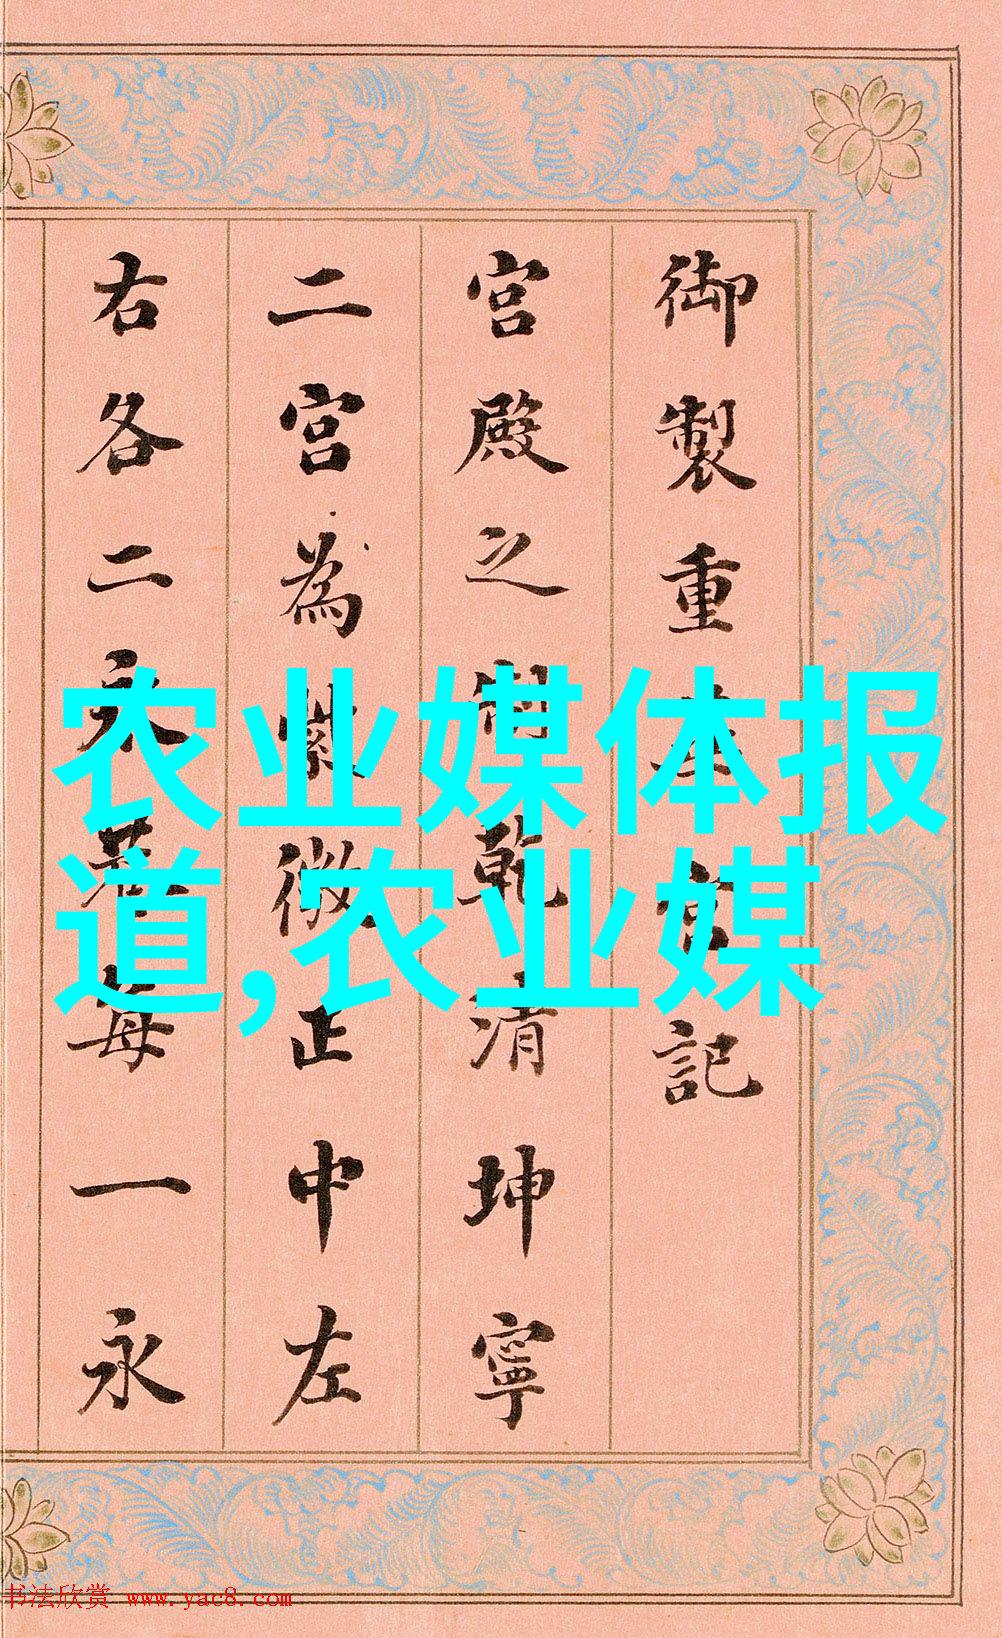 御製重華宮記
宮殿之制乾清坤寧
二宮為紫微正中左
右各二永巷每一永
农业媒体报
道,农业媒
书法欣赏 www.yac8.com